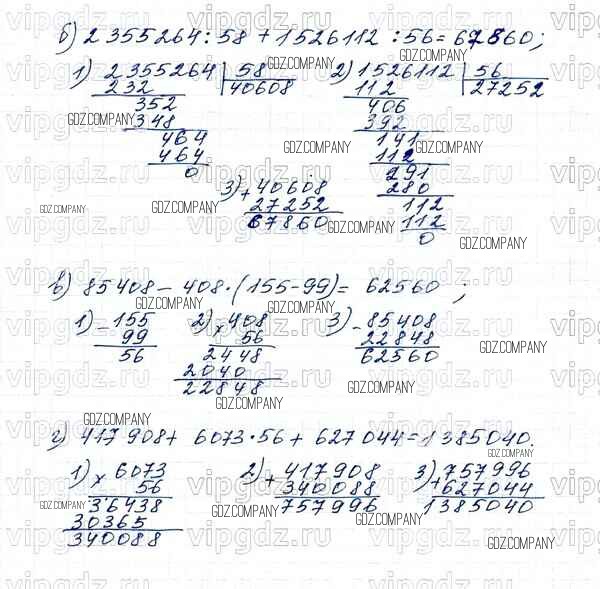 б) 2355264:58 + 1526112 :56= 67860;
1) 2355264 58 2) 1526112 56
232 40608 112 27252
352 406
348 392
464 141
464 112
0 291
3) + 40608 280
27252 112
67860 112
0
в) 85408 - 408·(155-99)= 62560 ;
1) - 155 2) × 408 3) - 85408
99 56 22848
56 2448 62560
2040
22848
г) 417908+ 6073·56 + 627044=1385040.
1) × 6073 2) + 417908 3) + 757996
56 340088 627044
36438 757996 1385040
30365
340088
vipgdz.ru
GDZ.COMPANY